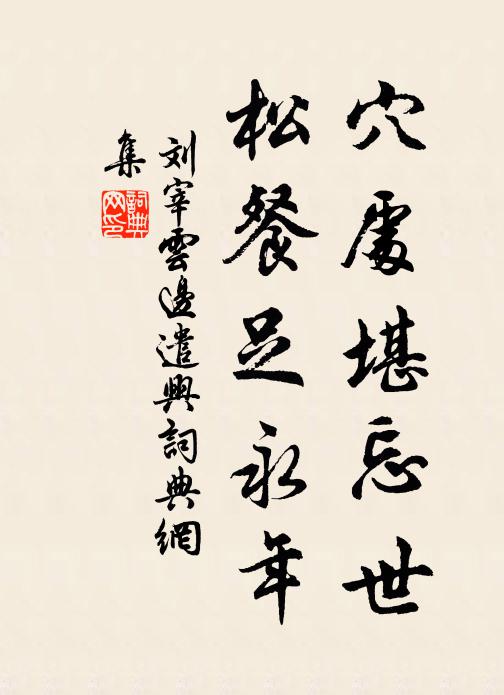 穴處堪忘世
松餐足永年
刘宰雲邊遣興詞典網
集
詞典網印